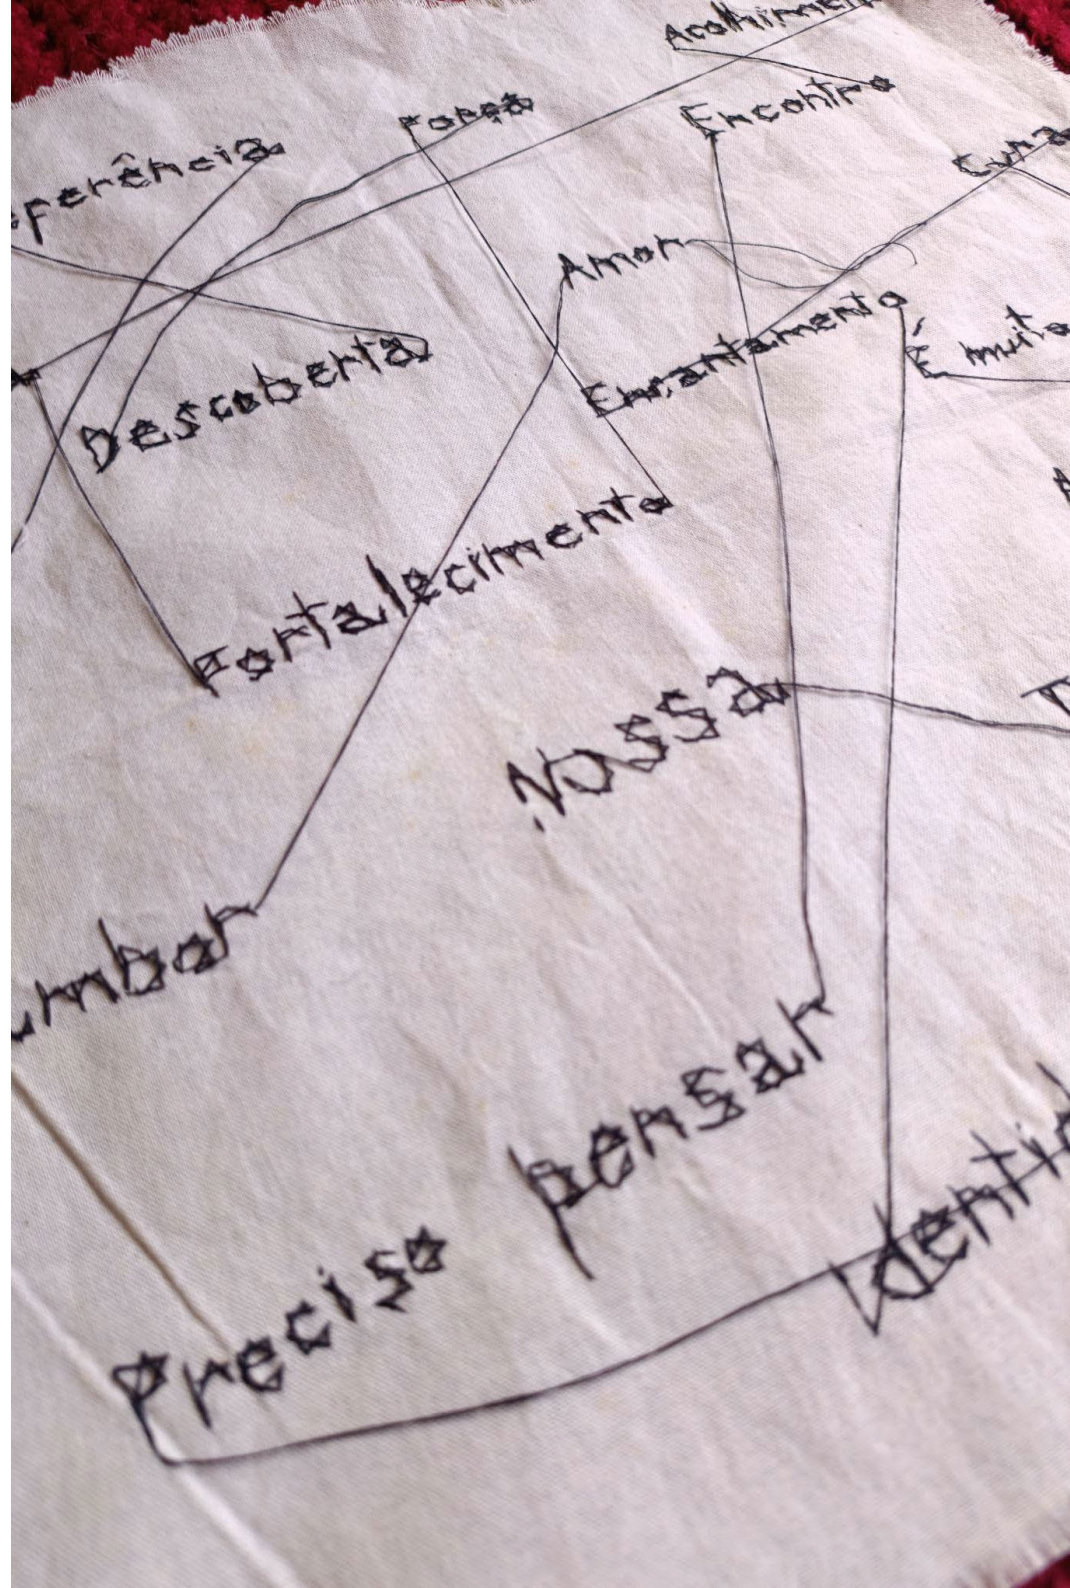 Acolhiment
Encontro
Força
ferência
Cura
Amor
Encantamento
É muito
Descoberta
Fortalecimento
Nossa
umbar
pensar
Preciso
Identid